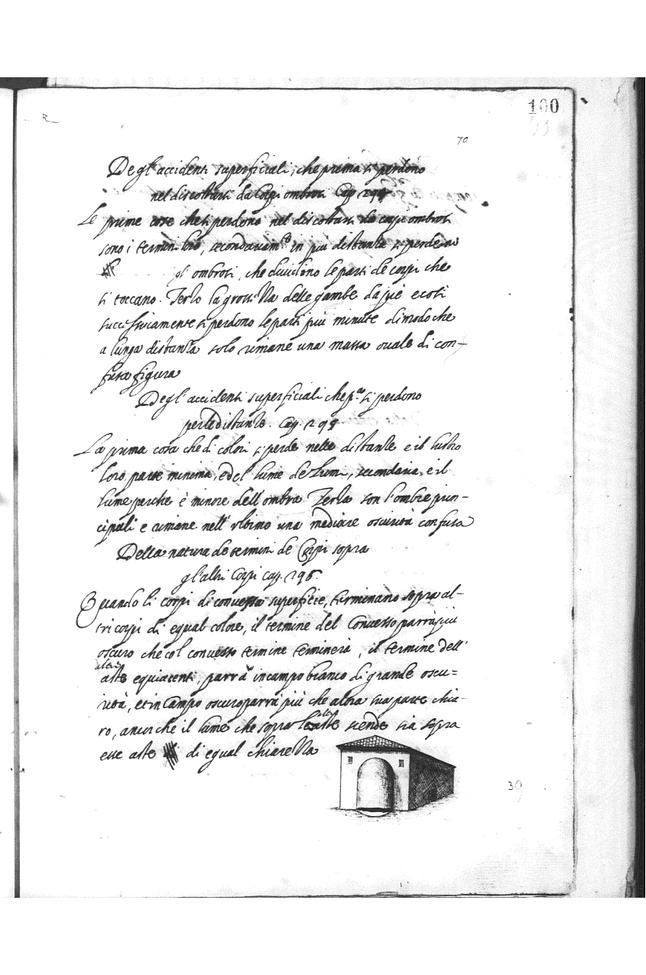 100
70
Degl'accidenti superficiali, che prima si perdono
nel discostarsi da Corpi ombrosi Cap. 294
Le prime cose che si perdono nel discostarsi da corpi ombrosi
sono i termini loro, secondariam.te in più distantia si perdono
gl'ombrosi, che dividono le parti de corpi che
si toccano. Terso la grossezza delle gambe da piè e così
successivamente si perdono le parti più minute di modo che
a lunga distantia solo rimane una massa ovale di con-
fusa figura
Degl'accidenti superficiali che p.a si perdono
per le distantie Cap. 295
La prima cosa che di colori si perde nelle distantie è il lustro
loro parte minima, ed è lume de lumi, secondaria, è il
lume perche è minore dell'ombra Terza son l'ombre prin-
cipali e rimane nell'ultimo una mediocre oscurità confusa
Della natura de termini de Corpi sopra
gl'altri Corpi cap. 296.
Quando li corpi di convessa superfitie, terminano sopra al-
tri corpi di egual colore, il termine del Convesso parrà più
oscuro che col convesso termine terminerà, il termine dell'
aste equiacenti, parrà in campo bianco di grande oscu-
rità, et in Campo oscuro parrà più che altra sua parte chia-
ro, ancor che il lume che sopra le aste scende sia sopra
esse aste di egual chiarezza
39